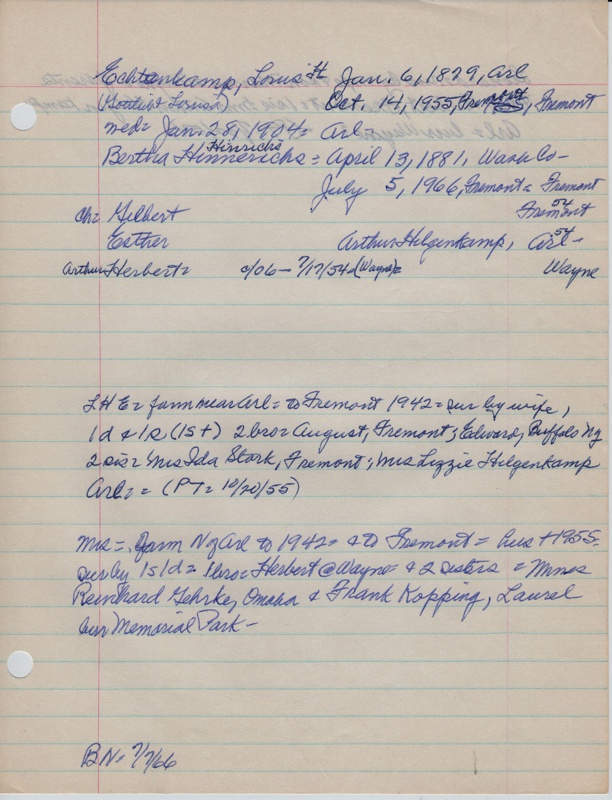 Echtenkamp, Louis H Jan. 6, 1879, Arl
(Gottlieb Louisa) Oct. 14, 1955, Fremont, Fremont
med= Jan. 28, 1904= Arl-
Hinrichs
Bertha Hinnerichs = April 13, 1881, Wash Co-
July 5, 1966, Fremont= Fremont
54
ch= Gilbert Fremont
54
Esther Arthur Hilgenkamp, Arl-
Arthur Herbert= c/06 - 7/17/54 (Wayne)= Wayne
L H E= farm near Arl= to Fremont 1942= sur by wife,
1d & 1s (1s+) 2 bro= August, Fremont; Edward, Buffalo Ny
2 sis= Mrs Ida Stork, Fremont; Mrs Lizzie Hilgenkamp
Arl= = (PT= 10/20/55)
Mrs=, farm N of Arl to 1942= & to Fremont = hus +1955-
sur by 1s 1d= 1 bro= Herbert @ Wayne= & 2 sisters = Mmes
Reinhard Gehrke, Omaha & Frank Kopping, Laurel
bur Memorial Park-
BN= 7/7/66